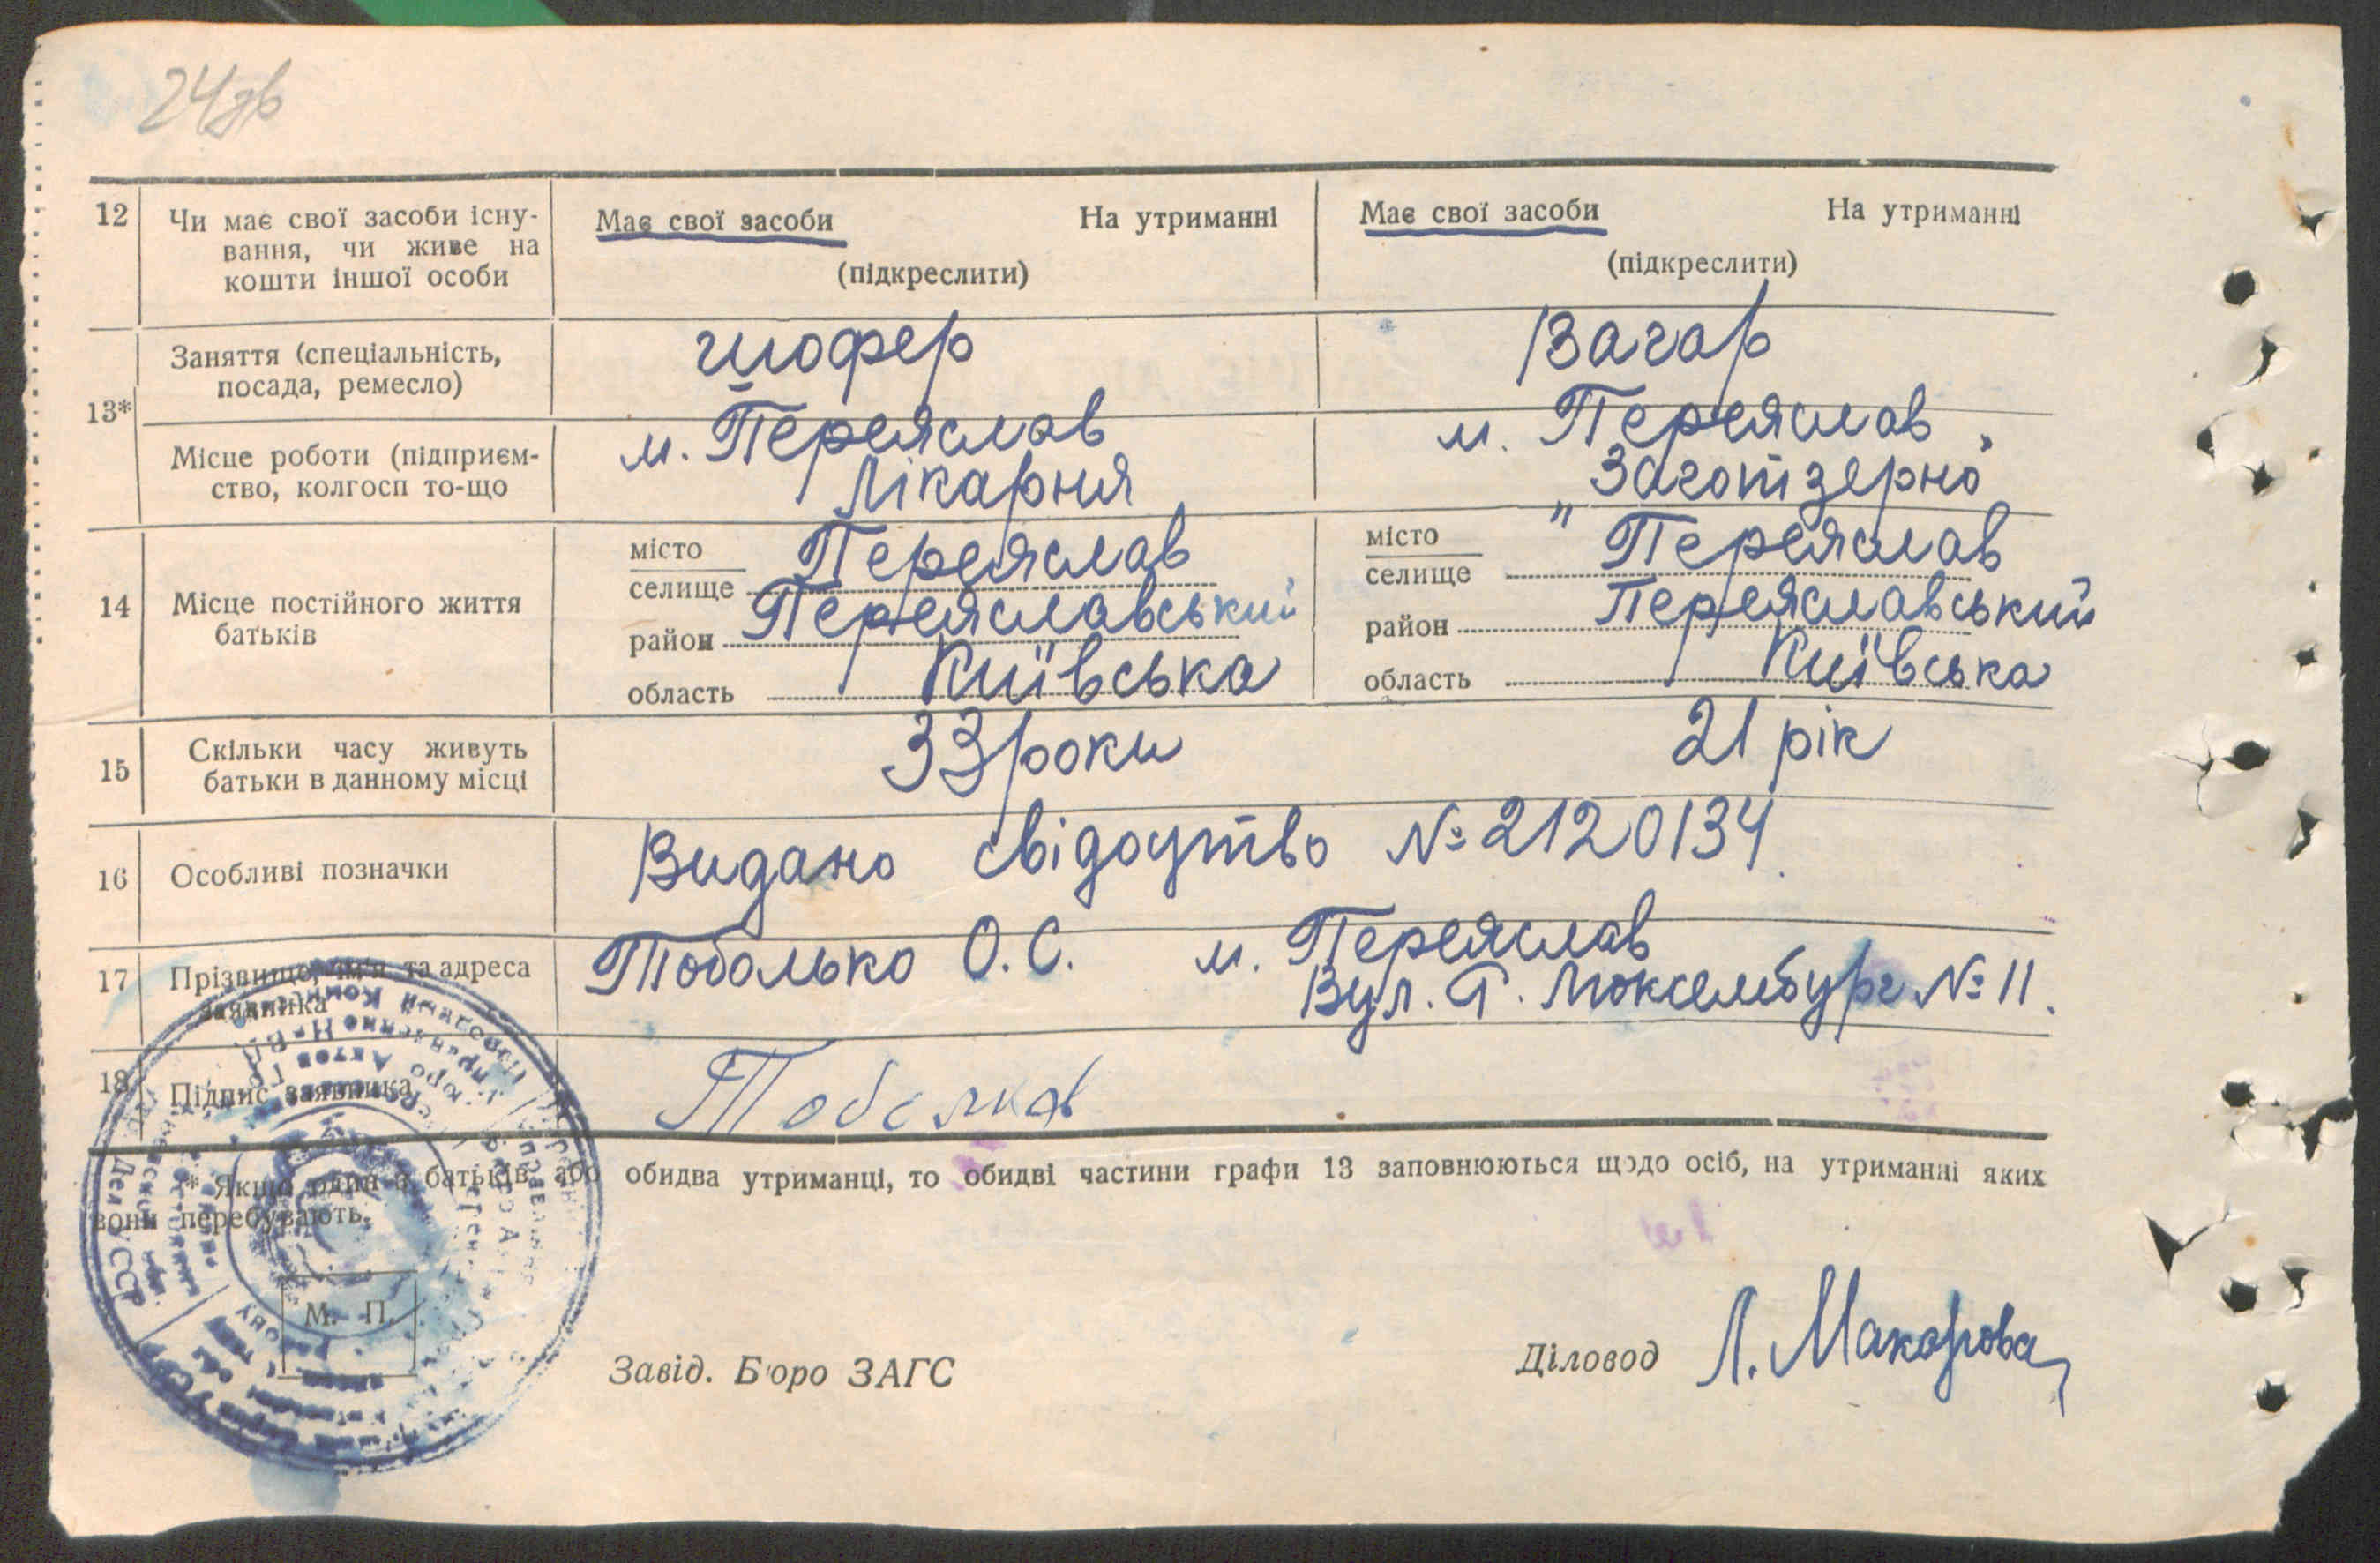 24зв
12 Чи має свої засоби існу-
вання, чи живе на
кошти іншої особи
Має свої засоби На утриманні
(підкреслити)
Має свої засоби На утриманні
(підкреслити)
13*
Заняття (спеціальність,
посада, ремесло)
шофер
Вагар
Місце роботи (підприєм-
ство, колгосп то-що
м. Переяслав
Лікарня
м. Переяслав
„Заготзерно"
14 Місце постійного життя
батьків
місто
селище Переяслав
район Переяславський
область Київська
місто
селище Переяслав
район Переяславський
область Київська
15 Скільки часу живуть
батьки в данному місці
33 роки
21 рік
16 Особливі позначки
Видано свідоцтво № 2120134
17 Прізвище, ім'я та адреса
заявника
Тоболько О. С. м. Переяслав
Вул. Р. Люксембург № 11.
18 Підпис заявника
* Якщо один з батьків, або обидва утриманці, то обидві частини графи 13 заповнюються щодо осіб, на утриманні яких
вони перебувають.
М. П.
Завід. Бюро ЗАГС
Діловод Л. Макарова